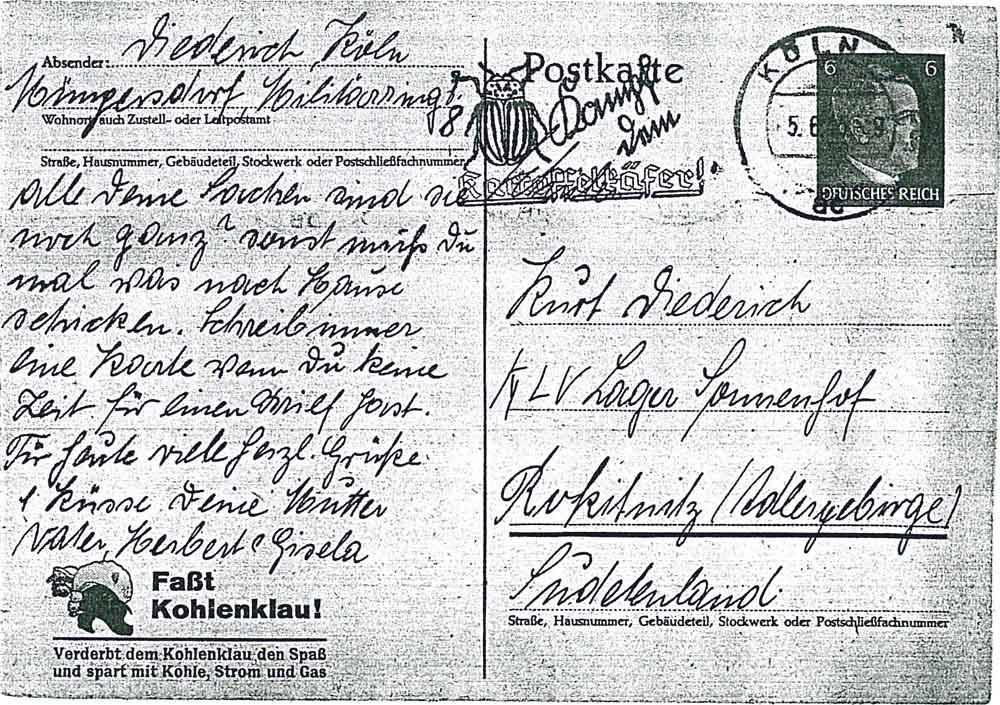 Absender: Diederich, Köln
Müngersdorf, Militärringstr.
Wohnort, auch Zustell- oder Leitpostamt
81
Straße, Hausnummer, Gebäudeteil, Stockwerk oder Postschließfachnummer
Alle Deine Sachen sind sie
noch ganz? sonst muß Du
mal was nach Hause
schicken. Schreib immer
eine Karte wenn Du keine
Zeit für einen Brief hast.
Für heute viele herzl. Grüße
& Küsse Deine Mutter
Vater, Herbert & Gisela
Faßt
Kohlenklau!
Verderbt dem Kohlenklau den Spaß
und spart mit Kohle, Strom und Gas
Postkarte
Kampf
dem
Kartoffelkäfer!
KÖLN
6 6
DEUTSCHES REICH
Kurt Diederich
KLV Lager Sonnenhof
Rokitnitz (Adlergebirge)
Sudetenland
Straße, Hausnummer, Gebäudeteil, Stockwerk oder Postschließfachnummer